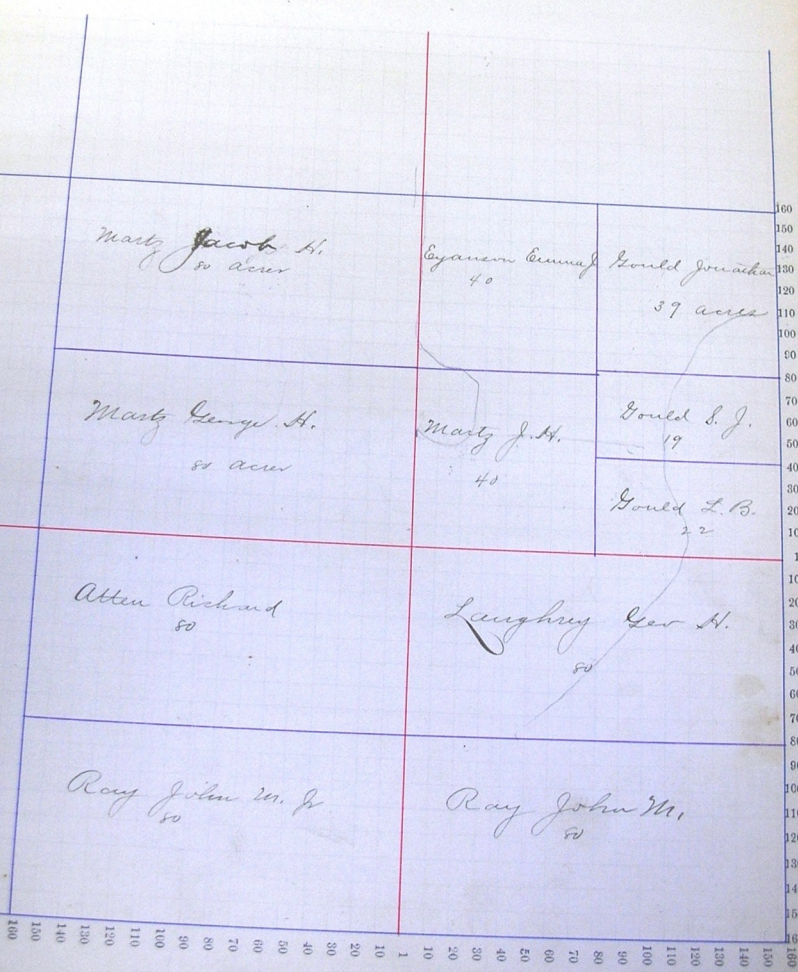 Martz Jacob H.
80 acres
Eyanson Emma J
40
Gould Jonathan
39 acres
Martz George H.
80 acres
Martz J. H.
40
Gould S. J.
19
Gould L. B.
22
Atten Richard
80
Laughrey Geo H.
80
Ray John M. Jr
80
Ray John M.
80
160
150
140
130
120
110
100
90
80
70
60
50
40
30
20
10
1
10
20
30
40
50
60
70
80
90
100
110
120
13
14
15
16
160 150 140 130 120 110 100 90 80 70 60 50 40 30 20 10 1 10 20 30 40 50 60 70 80 90 100 110 120 130 140 150 160